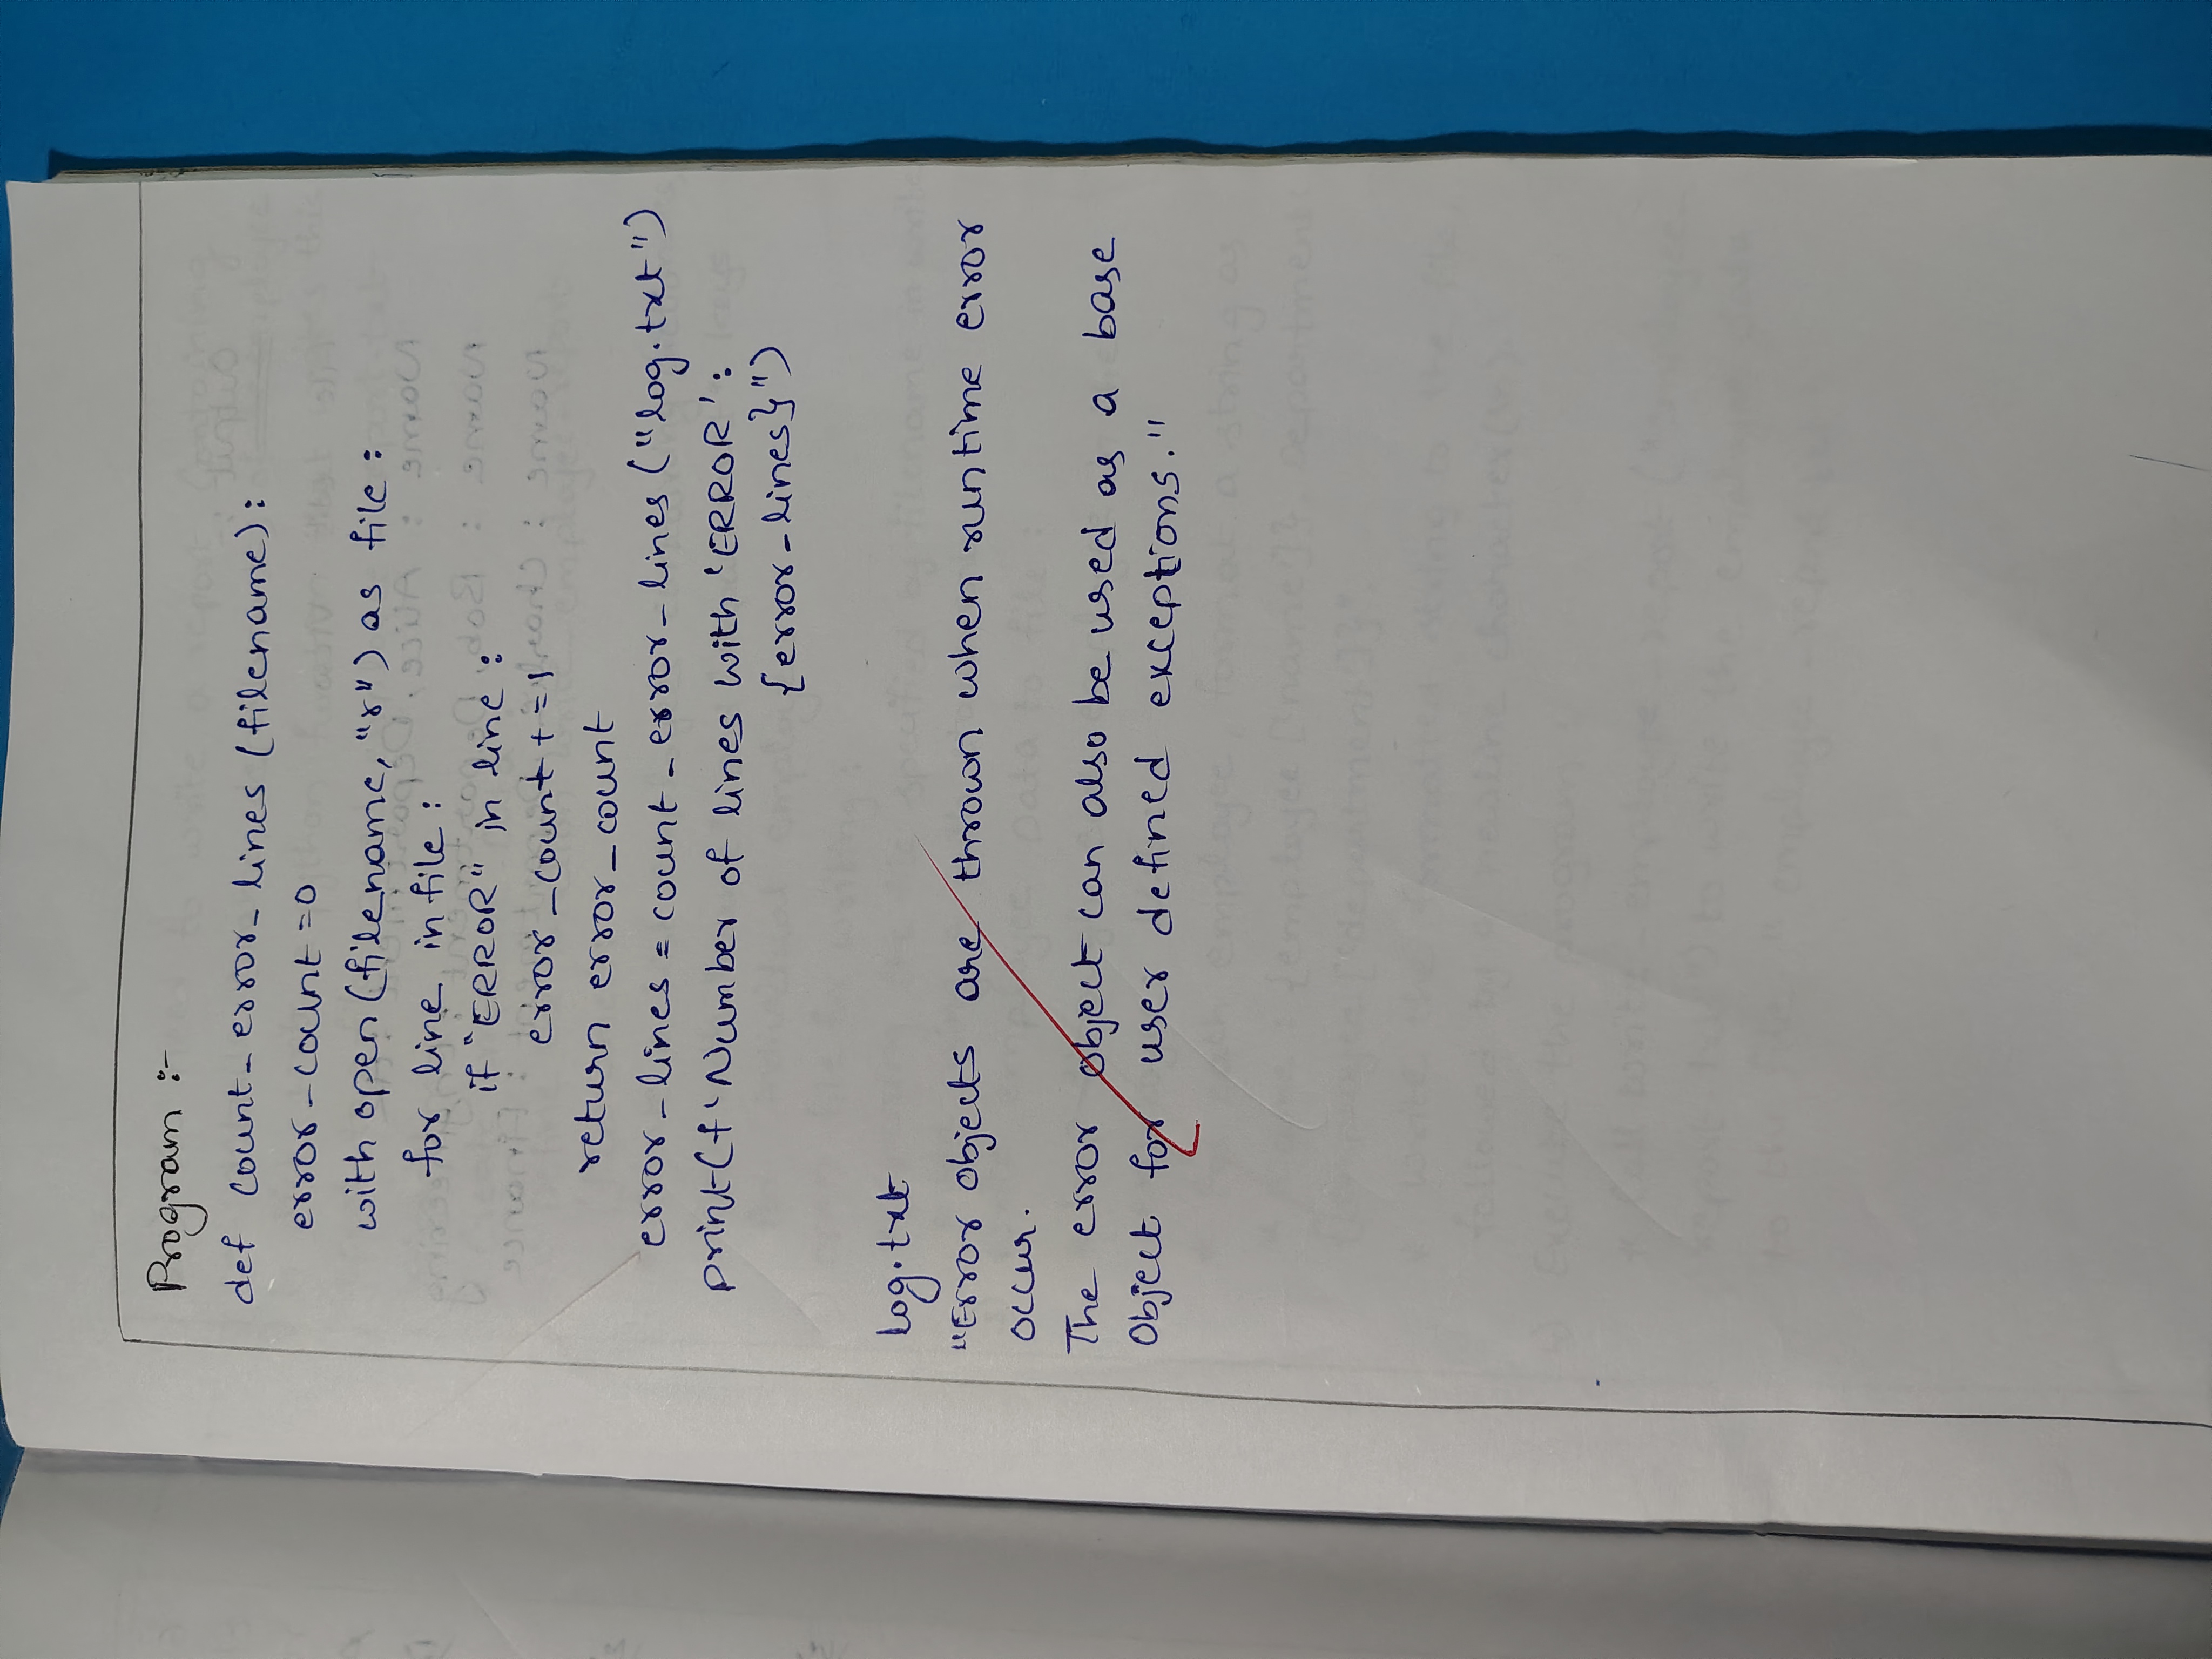 Program :-
def count_error_lines (filename):
error_count =0
with open (filename, "r") as file :
for line in file :
if "ERROR" in line :
error_count + = 1
return error_count
error_lines = count_error_lines ("log.txt")
print(f 'Number of lines with 'ERROR' :
{error_lines}")
log.txt
"Error objects are thrown when runtime error
occur.
The error object can also be used as a base
Object for user defined exceptions."